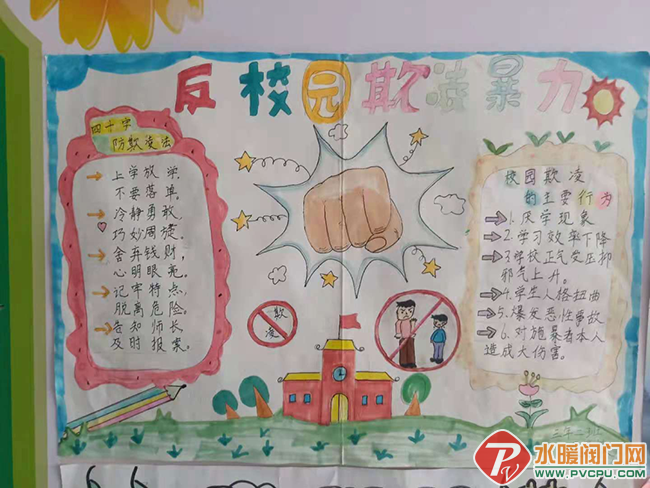 反校园欺凌暴力
四十字
防欺凌法
上学放学,
不要落单。
冷静勇敢,
巧妙周旋。
舍弃钱财,
心明眼亮。
记牢特点,
脱离危险。
告知师长,
及时报案。
欺
凌
校园欺凌
的主要行为
1.厌学现象
2.学习效率下降
3.学校正气受压抑
邪气上升。
4.学生人格扭曲
5.爆发恶性事故
6.对施暴者本人
造成大伤害。
水暖阀门网
WWW.PVCPU.COM